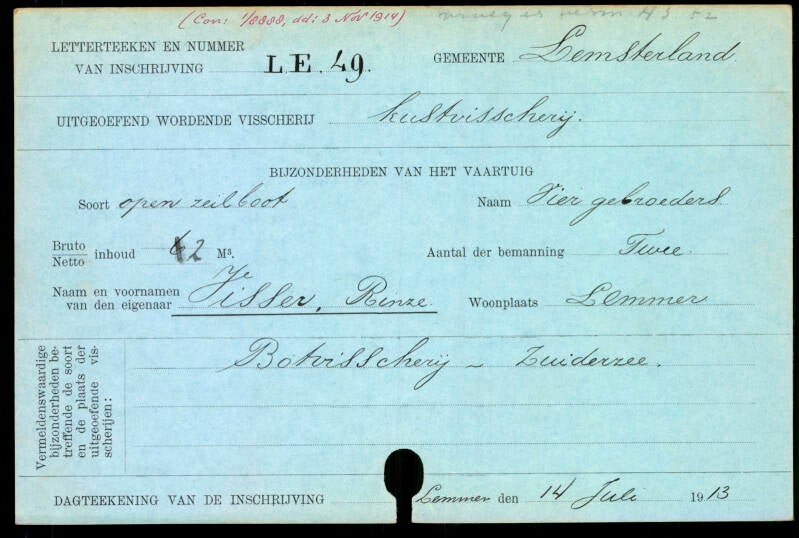 (Con: 1/8888, dd: 3 Nov 1914)
LETTERTEEKEN EN NUMMER
VAN INSCHRIJVING LE. 49. GEMEENTE Lemsterland.
UITGEOEFEND WORDENDE VISSCHERIJ kustvisscherij.
BIJZONDERHEDEN VAN HET VAARTUIG
Soort open zeilboot Naam Vier gebroeders
Bruto
Netto inhoud 2 M³. Aantal der bemanning Twee.
Naam en voornamen
van den eigenaar Visser, Rinze. Woonplaats Lemmer
Vermeldenswaardige
bijzonderheden be-
treffende de soort
en de plaats der
uitgeoefende vis-
scherijen:
Botvisscherij – Zuiderzee.
DAGTEEKENING VAN DE INSCHRIJVING Lemmer den 14 Juli 1913